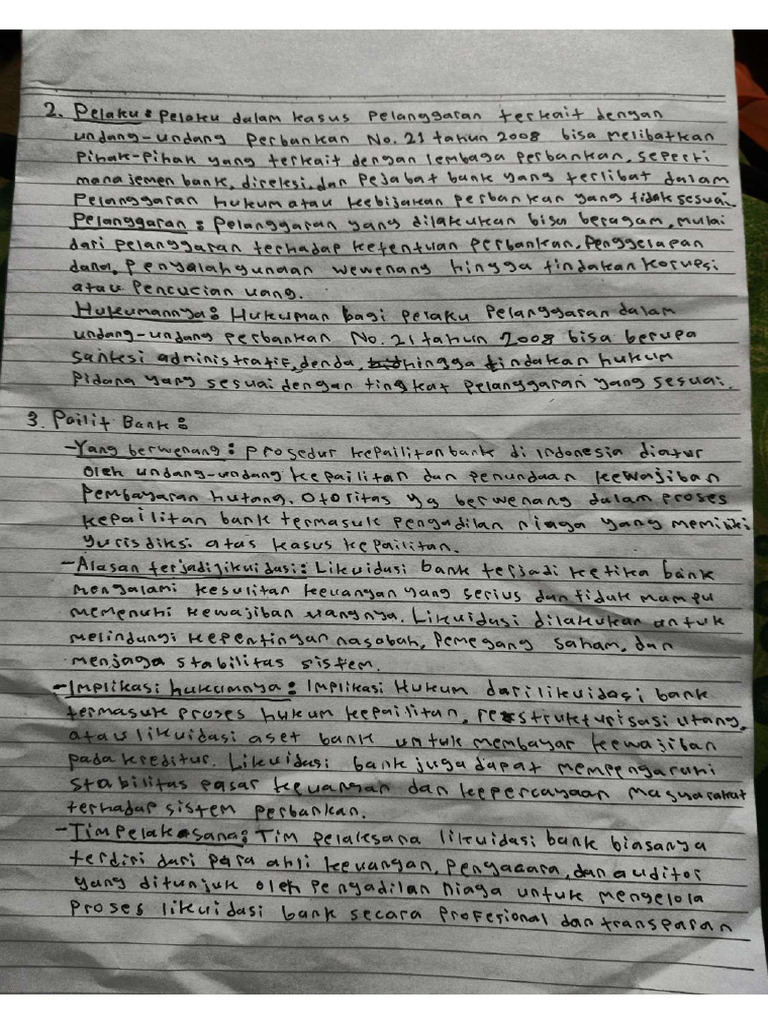 2. Pelaku : Pelaku dalam kasus Pelanggaran terkait dengan
undang-undang Perbankan No. 21 tahun 2008 bisa melibatkan
Pihak-Pihak yang terkait dengan lembaga perbankan, seperti
manajemen bank, direksi, dan Pejabat bank yang terlibat dalam
Pelanggaran hukum atau kebijakan perbankan yang tidak sesuai.
Pelanggaran : Pelanggaran yang dilakukan bisa beragam, mulai
dari pelanggaran terhadap ketentuan perbankan, Penggelapan
dana, Penyalahgunaan wewenang hingga tindakan korupsi
atau Pencucian uang.
Hukumannya : Hukuman bagi pelaku Pelanggaran dalam
undang-undang perbankan No. 21 tahun 2008 bisa berupa
sanksi administratif, denda, hingga tindakan hukum
Pidana yang sesuai dengan tingkat pelanggaran yang sesuai.
3. Pailit Bank :
- Yang berwenang : Prosedur kepailitan bank di Indonesia diatur
oleh undang-undang kepailitan dan penundaan kewajiban
Pembayaran hutang. Otoritas yg berwenang dalam proses
kepailitan bank termasuk pengadilan niaga yang memiliki
yurisdiksi atas kasus kepailitan.
- Alasan terjadi likuidasi : Likuidasi bank terjadi ketika bank
mengalami kesulitan keuangan yang serius dan tidak mampu
memenuhi kewajiban uangnya. Likuidasi dilakukan untuk
melindungi kepentingan nasabah, Pemegang saham, dan
menjaga stabilitas sistem.
- Implikasi hukumnya : Implikasi Hukum dari likuidasi bank
termasuk proses hukum kepailitan, restrukturisasi utang,
atau likuidasi aset bank untuk membayar kewajiban
pada kreditur. Likuidasi bank juga dapat mempengaruhi
stabilitas pasar keuangan dan kepercayaan masyarakat
terhadap sistem perbankan.
- Tim Pelaksana : Tim pelaksana likuidasi bank biasanya
terdiri dari para ahli keuangan, pengacara, dan auditor
yang ditunjuk oleh Pengadilan Niaga untuk mengelola
Proses likuidasi bank secara Profesional dan transparan